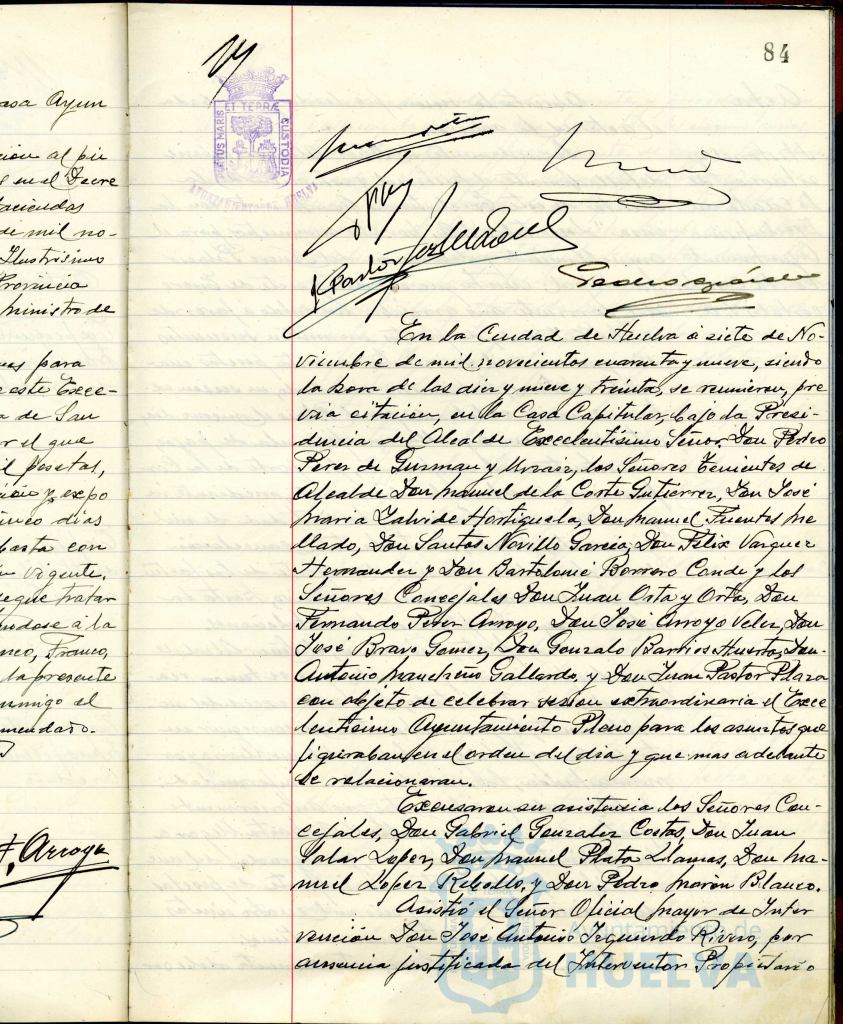 84
PORTUS MARIS
ET TERRÆ
CUSTODIA
AYUNTAMIENTO DE HUELVA
asa Ayun
ción al pie
en el Decre
Haciendas
de mil no-
Ilustrisimo
Provincia
ministro de
para
este Exce-
a de San
r el que
il pesetas,
y expo
inco dias
basta con
vigente.
que tratar
ndose á la
nco, Franco,
la presente
nmigo el
mendado.
F. Arroyo
Pastor
Pedro
En la Ciudad de Huelva á siete de No-
viembre de mil novecientos cuarenta y nueve, siendo
la hora de las diez y nueve y treinta, se reunieron, pre
via citación, en la Casa Capitular, bajo la Presi-
dencia del Alcalde Excelentísimo Señor Don Pedro
Perez de Guzman y Urzaiz, los Señores Tenientes de
Alcalde Don Manuel de la Corte Gutierrez, Don José
Maria Zalvide Hortiguela, Don Manuel Fuentes Me
llado, Don Santos Novillo Garcia, Don Felix Vazquez
Hernandez y Don Bartolomé Borrero Conde y los
Señores Concejales Don Juan Orta y Orta, Don
Fernando Perez Arroyo, Don José Arroyo Velez, Don
José Bravo Gomez, Don Gonzalo Barrios Huerta, Don
Antonio Mancheño Gallardo, y Don Juan Pastor Plaza
con objeto de celebrar sesion extraordinaria el Exce
lentisimo Ayuntamiento Pleno para los asuntos que
figuraban en el orden del dia y que mas adelante
se relacionaran.
Excusaron su asistencia los Señores Con-
cejales, Don Gabriel Gonzalez Costas, Don Juan
Salas Lopez, Don Manuel Plata Llamas, Don Ma-
nuel Lopez Rebollo, y Don Pedro Morón Blanco.
Asistió el Señor Oficial mayor de Inter
vención Don José Antonio Izquierdo Rivero, por
ausencia justificada del Interventor Propietario
Ayuntamiento de
HUELVA